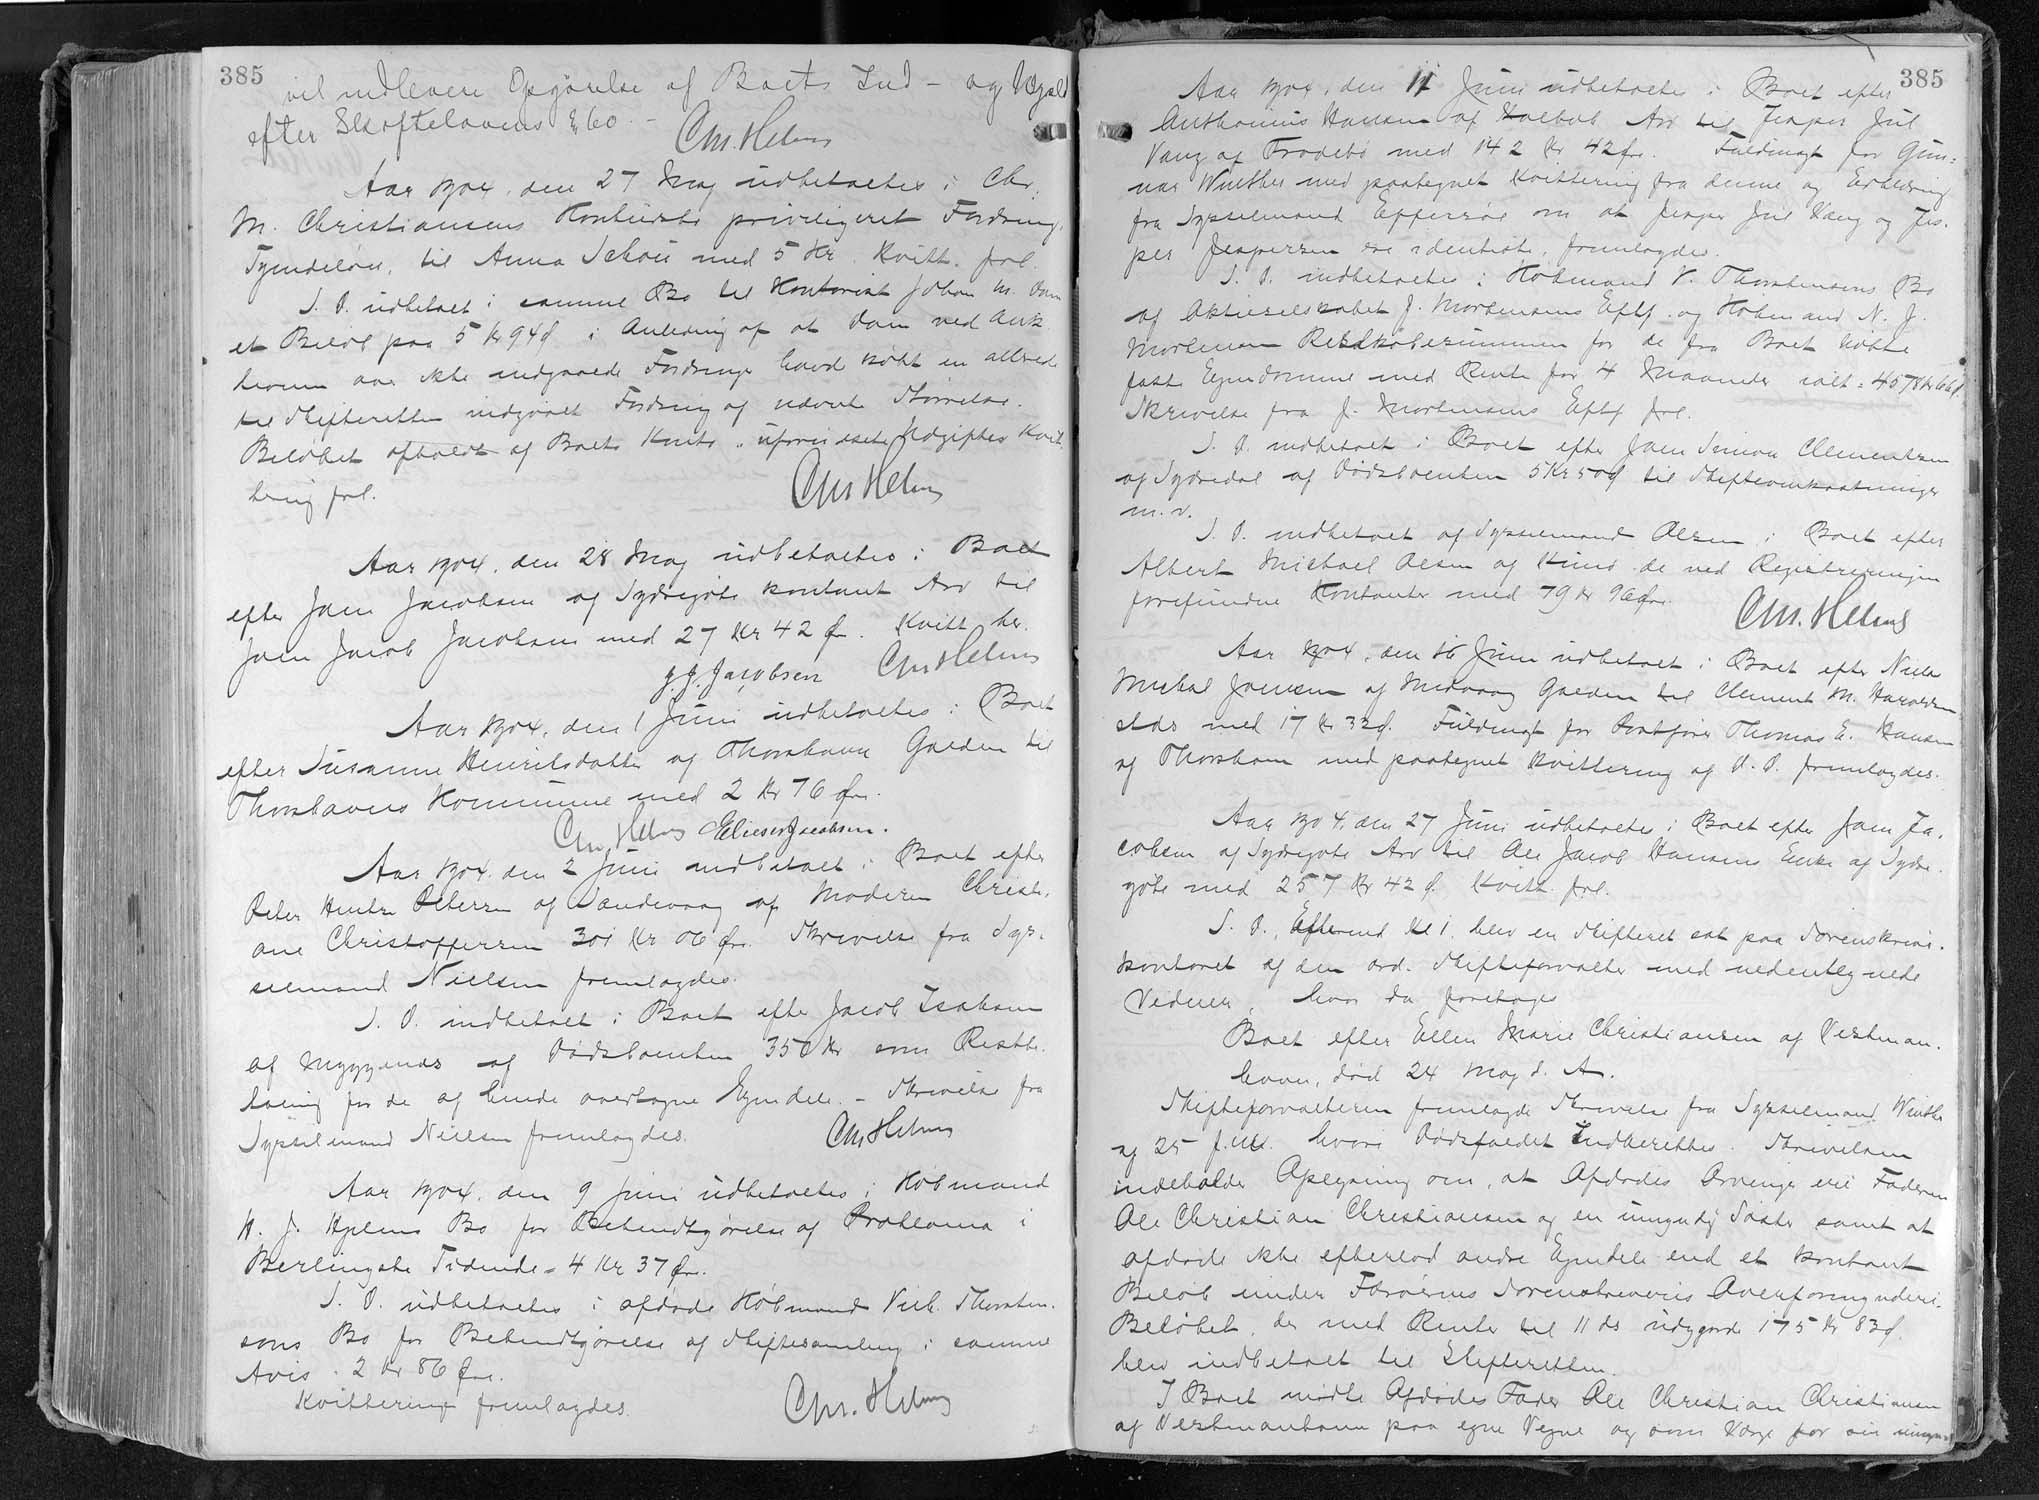 385
vil indlevere Opgørelse af Boets Ind- og Udgæld
efter Skiftelovens § 60. -
Chr. Helms
Aar 1904, den 27 Maj udbetaltes i Chr.
M. Christiansens Konkursbo priviligeret Fordring,
Tyendeløn, til Anna Schou med 5 Kr. Kvitt. frl.
S. D. udbetalt i samme Bo til Kontorist Johan M. Dam
et Beløb paa 5 Kr 94 Ø i Anledning af at Dam ved Auk
tionen over ikke indgaaede Fordringer havde købt en allerede
til Skifteretten indgaaet Fordring af nævnte Størrelse.
Beløbet afholdt af Boets Konto "uforudsete Udgifter" Kvit
tering frl.
Chr. Helms
Aar 1904, den 28 Maj udbetaltes i Boet
efter Joen Jacobsen af Sydregøte kontant Arv til
Joen Jacob Jacobsen med 27 Kr 42 Ør. Kvitt. her.
J. J. Jacobsen Chr. Helms
Aar 1904, den 1 Juni udbetaltes i Boet
efter Susanne Henriksdatter af Thorshavn Gælden til
Thorshavns Kommune med 2 Kr 76 Øre.
Chr. Helms Elieser Jacobsen.
Aar 1904, den 2 Juni indbetalt i Boet efter
Peter Petersen af Sandevaag af Moderen Christi-
ane Christoffersen 301 Kr 06 Øre. Skrivelse fra Sys-
selmand Nielsen fremlagdes.
S. D. indbetalt i Boet efter Jacob Isaksen
af Myggenæs af Dødsboenken 350 Kr som Restbe-
taling for de af hende overtagne Ejendele. - Skrivelse fra
Sysselmand Nielsen fremlagdes.
Chr. Helms
Aar 1904, den 9 Juni udbetaltes i Købmand
Bo for Bekendtgørelse af Proklama i
Berlingske Tidende - 4 Kr 37 Øre.
S. D. udbetaltes i afdøde Købmand Thorsten-
sens Bo for Bekendtgørelse af Skiftesamling i samme
Avis - 2 Kr 86 Øre.
Kvittering fremlagdes.
Chr. Helms
385
Aar 1904, den 11 Juni udbetaltes i Boet efter
Anthonius Hansen af Kvalbø Arv til Jesper Juul
Vang af Frodebø med 142 Kr 42 Øre. Fuldmagt for Gun-
nar Winther med paategnet Kvittering fra denne og Erklæring
fra Sysselmand Effersøe om at Jesper Juul Vang og Jes-
per Jespersen ere identiske, fremlagdes.
S. D. indbetaltes i Købmand V. Thorstensens Bo
af Aktieselskabet J. Mortensens Eftf. og Købmand N. J.
Mortensen Restkøbesummen for de fra Boet købte
faste Ejendomme med Rente for 4 Maaneder ialt = 4578 Kr 66 Ø
Skrivelse fra J. Mortensens Eftf. frl.
S. D. indbetalt i Boet efter Joen Simon Clementsen
af Sydredal af Dødsboenken 5 Kr 50 Ø til Skifteomkostninger
m. v.
S. D. indbetalt af Sysselmand Olsen i Boet efter
Albert Michael Olsen af Kunø de ved Registreringen
forefundne Kontanter med 79 Kr 96 Øre.
Chr. Helms
Aar 1904, den 16 Juni udbetalt i Boet efter Niels
Michal Joensen af Midvaag Gælden til Clement M.
med 17 Kr 33 Ø. Fuldmagt for Thomas E. Hansen
af Thorshavn med paategnet Kvittering af D. D. fremlagdes.
Aar 1904, den 27 Juni udbetaltes i Boet efter Joen Ja-
cobsen af Sydregøte Arv til Ole Jacob Hansens Enke af Sydre-
gøte med 257 Kr 42 Ø. Kvitt. frl.
S. D., Eftermd Kl 1, blev en Skifteret sat paa Sorenskriver-
kontoret af den ord. Skifteforvalter med nedentegnede
Vidner, hvor da foretoges
Boet efter Ellen Marie Christiansen af Vestman-
havn, død 24 Maj d. A.
Skifteforvalteren fremlagde Skrivelse fra Sysselmand Winther
af 25 f. M. hvori Dødsfaldet indberettes. Skrivelsen
indeholder Oplysning om, at Afdødes Arvinger er Faderen
Ole Christian Christiansen og en umyndig Søster samt at
afdøde ikke efterlod andre Ejendele end et kontant
Beløb under Færøernes Sorenskriveris Overformynderi.
Beløbet, der med Renter til 11 ds udgjorde 175 Kr 83 Ø.
blev indbetalt til Skifteretten.
I Boet mødte Afdødes Fader Ole Christian Christiansen
af Vestmanhavn paa egne Vegne og som Værge for sin